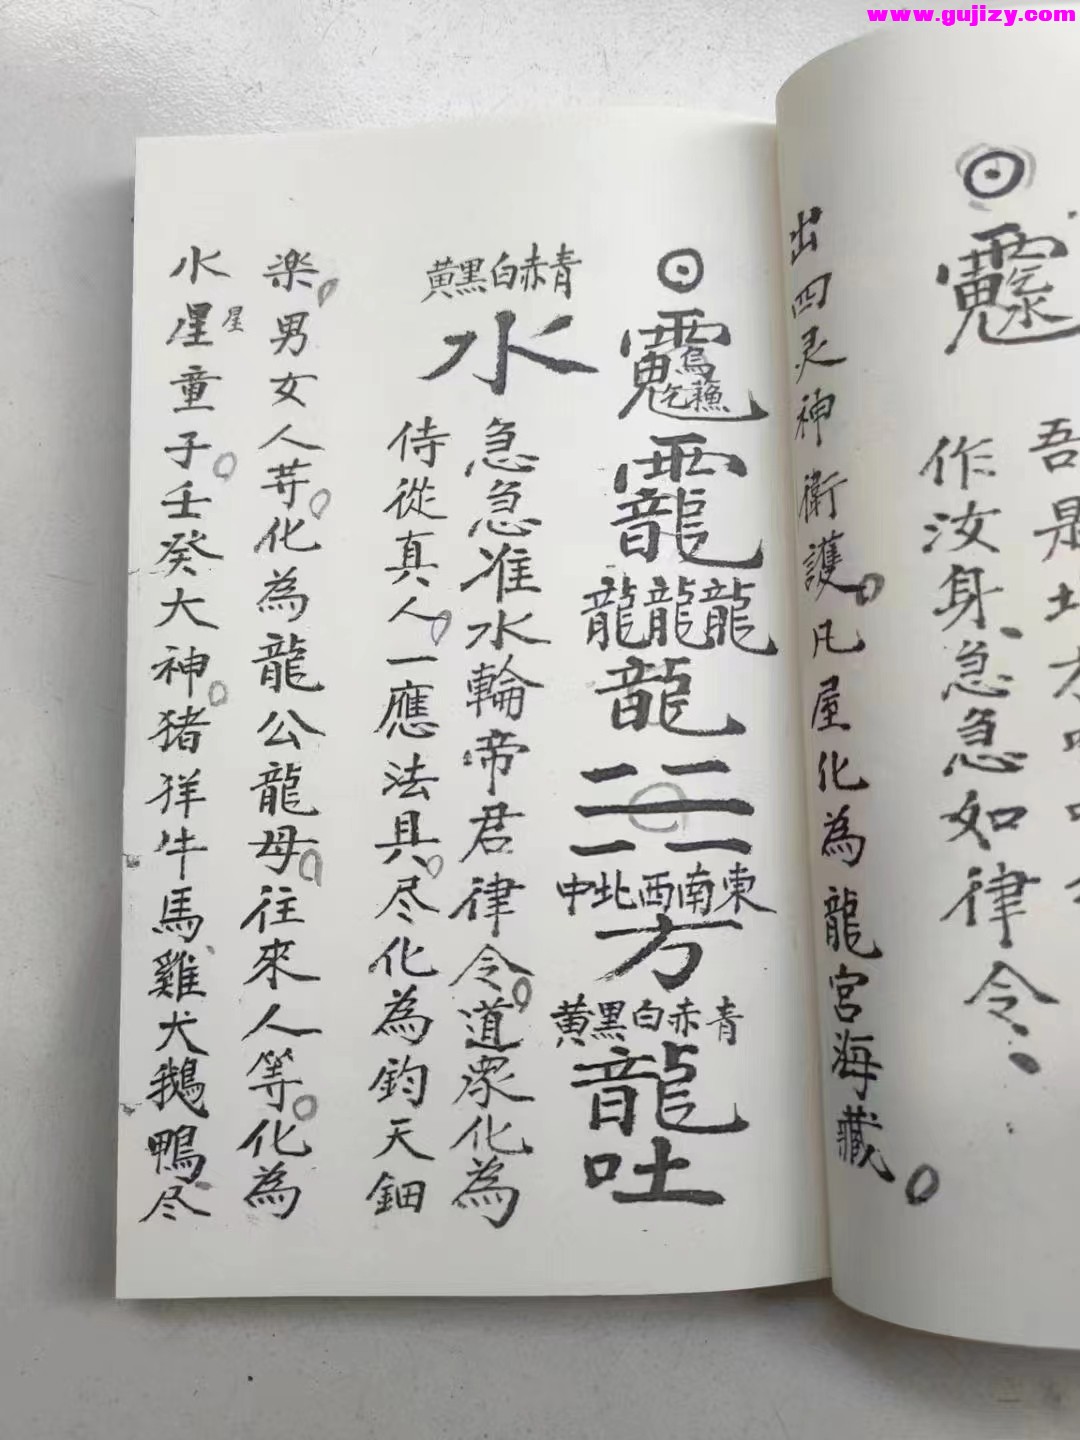 www.gujizy.com
吾是北方
作汝身急急如律令
出四灵神衛護凡屋化為龍宮海藏
龍龍龍
龍
東南西北中
方
青赤白黑黄
龍
吐
青赤白黑黄
水
急急准水輪帝君律令道眾化為
侍從真人一應法具尽化為鈞天鈿
楽男女人芽化為龍公龍母往來人等化為
水星童子壬癸大神猪羊牛馬雞犬鵝鴨尽
星